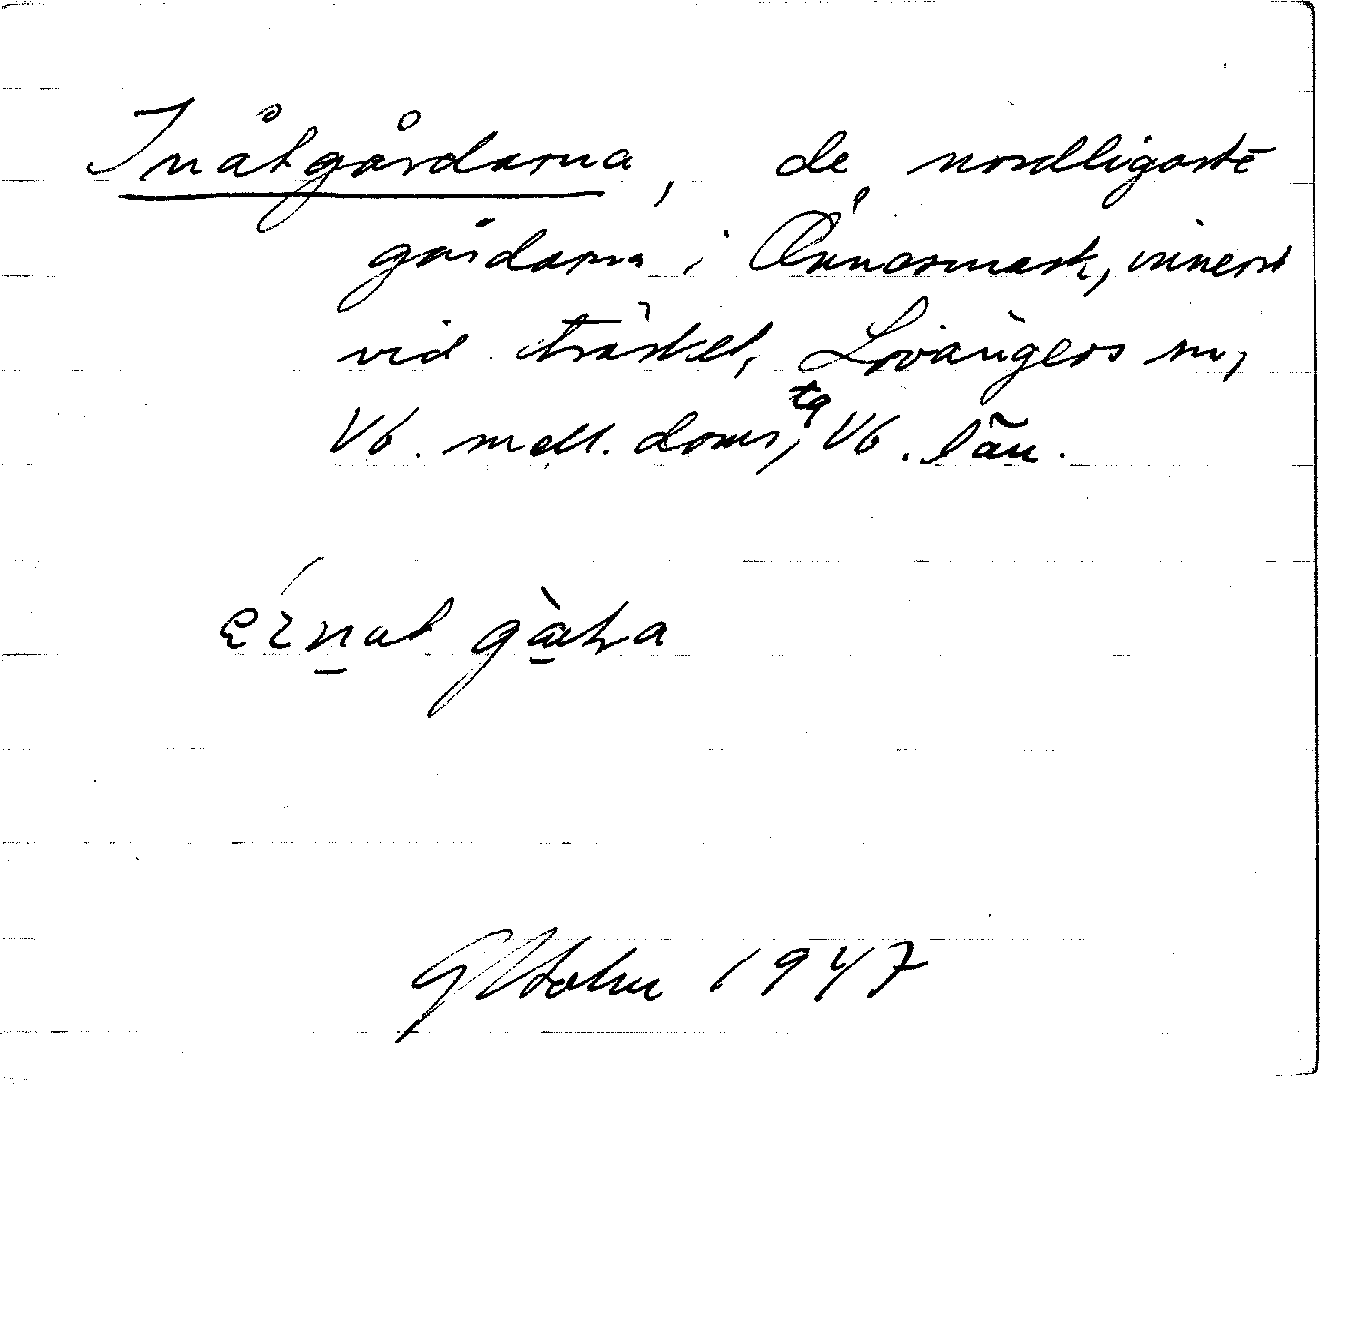 Inåtgårdarna, de nordligaste
gårdarna i Önnesmark, innerst
vid träsket, Lövångers sn,
Vb. mell. doms, tg Vb. län.
1947